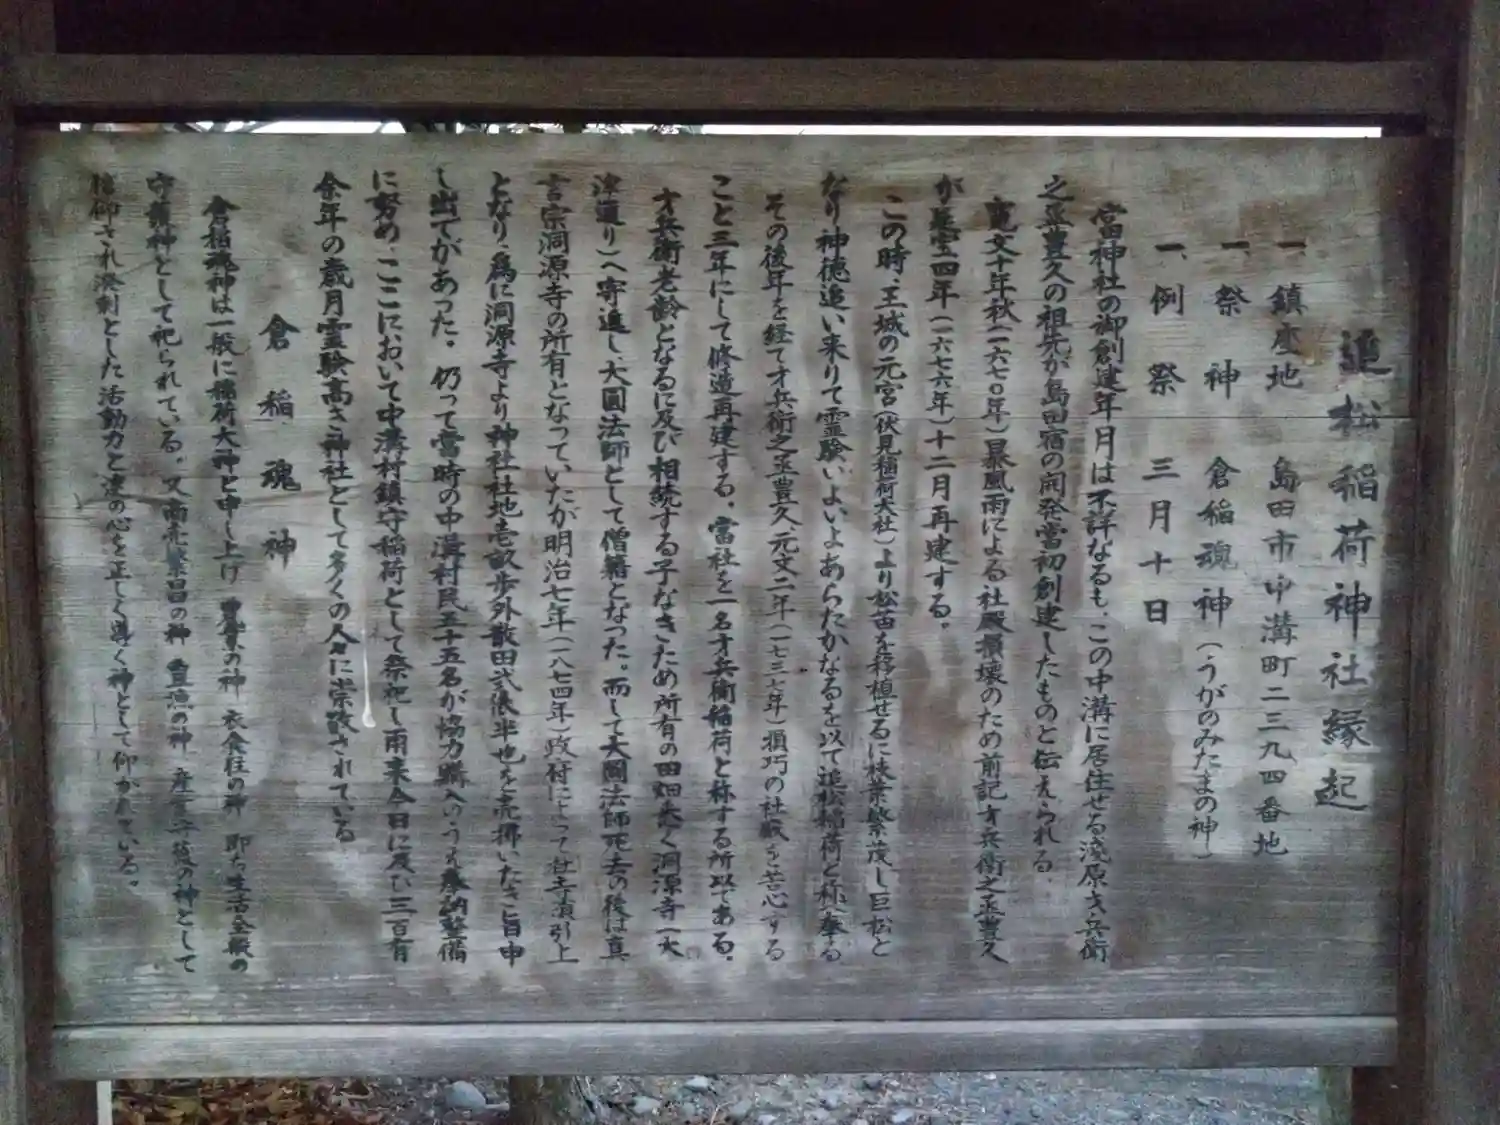 追松稲荷神社縁起
一、鎮座地 島田市中溝町二三九四番地
一、祭神 倉稲魂神(うがのみたまの神)
一、例祭 三月十日
當神社の御創建年月は不詳なるも、この中溝に居住せる浅原才兵衛
之丞豊久の祖先が島田宿の開発當初創建したものと伝えられる。
寛文十年秋(一六七〇年)暴風雨による社殿損壊のため前記才兵衛之丞豊久
が延宝四年(一六七六年)十二月再建する。
この時、王城の元宮(伏見稲荷大社)より松苗を移植せるに枝葉繁茂し巨松と
なり神徳追い来りて霊験いよいよあらたかなるを以て追松稲荷と称へ奉る
その後年を経て才兵衛之丞豊久元文二年(一七三七年)損巧の社殿を苦心する
こと三年にして修造再建する。當社を一名才兵衛稲荷と称する所以である。
才兵衛老齢となるに及び相続する子なきため所有の田畑悉く洞源寺(大
津通り)へ寄進し、大圓法師として僧籍となった。而して大圓法師死去の後は真
言宗洞源寺の所有となっていたが明治七年(一八七四年)政府によって社寺領引上
となり、為に洞源寺より神社社地壱畝歩外散田弐俵半也を売拂いたき旨申
し出てがあった。仍って當時の中溝村民五十五名が協力購入のうえ奉納整備
に努め、ここにおいて中溝村鎮守稲荷として祭祀し雨来今日に及び三百有
余年の歳月霊験高き神社として多くの人々に崇敬されている
倉稲魂神
倉稲魂神は一般に稲荷大神と申し上げ 農業の神 衣食住の神 即ち生活全般の
守護神として祀られている。又商売繁昌の神 豊漁の神 産 の神として
信仰され溌剌とした活動力と 心を正しく導く神として仰がれている。